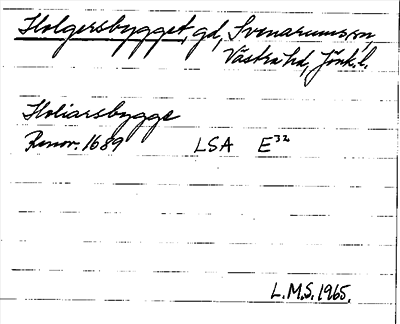 Holgersbygget, gd, Svenarums sn,
Västra hd, Jönk. l.
Holiarsbygge
Renov. 1689 LSA E³²
L.M.S. 1965.